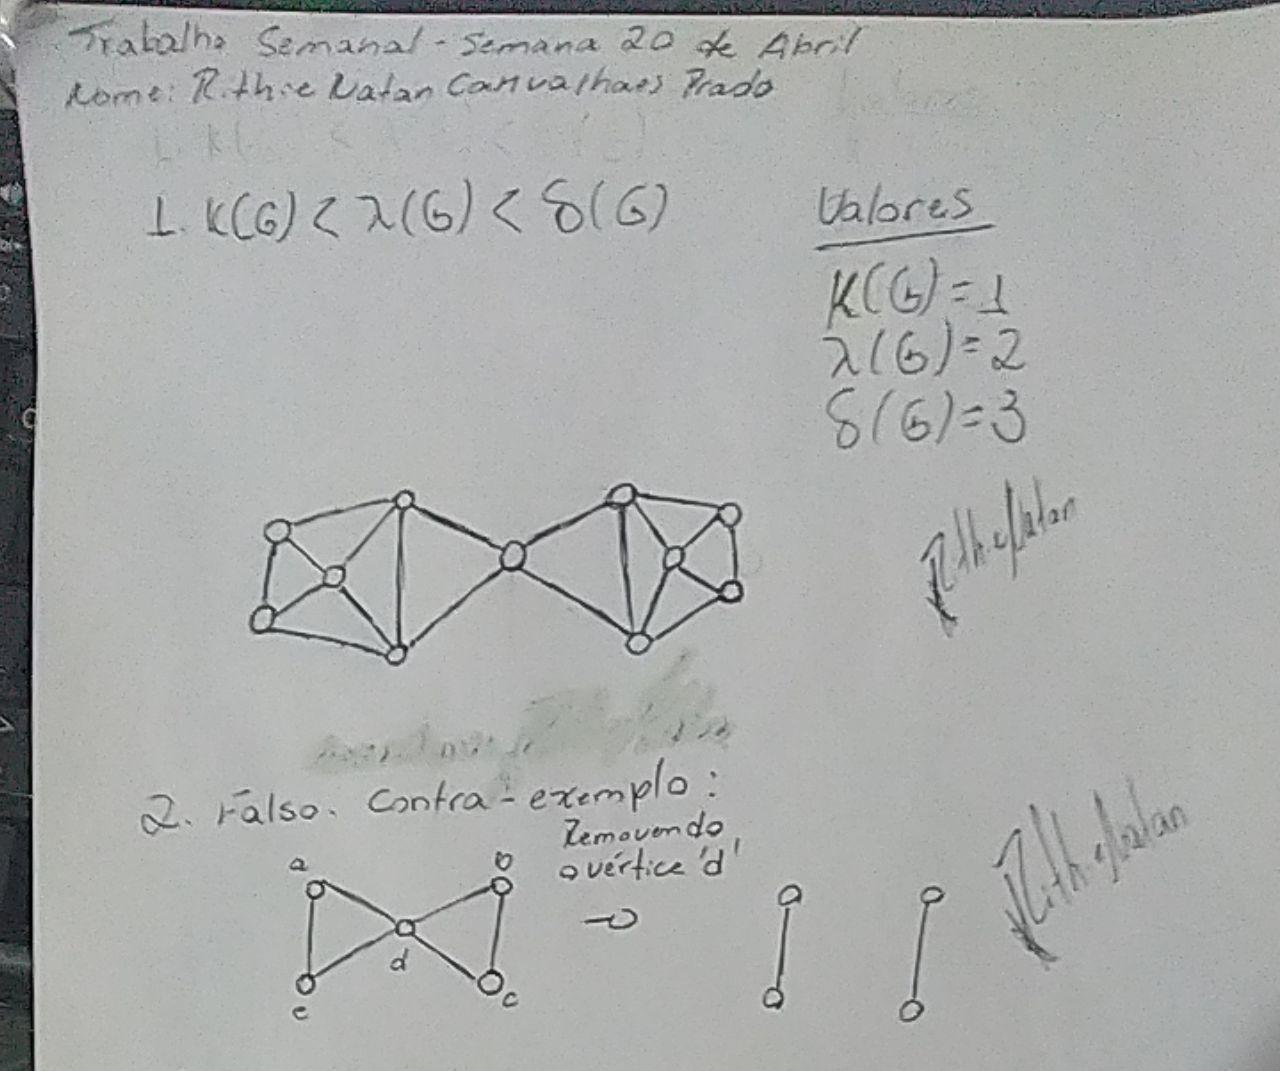 Trabalho Semanal - Semana 20 de Abril
Nome: Rithie Natan Carvalhaes Prado
1. K(G) < λ(G) < δ(G)
Valores
K(G) = 1
λ(G) = 2
δ(G) = 3
Rithie Natan
2. Falso. Contra-exemplo:
Removendo
o vértice 'd'
a
b
d
e
c
Rithie Natan